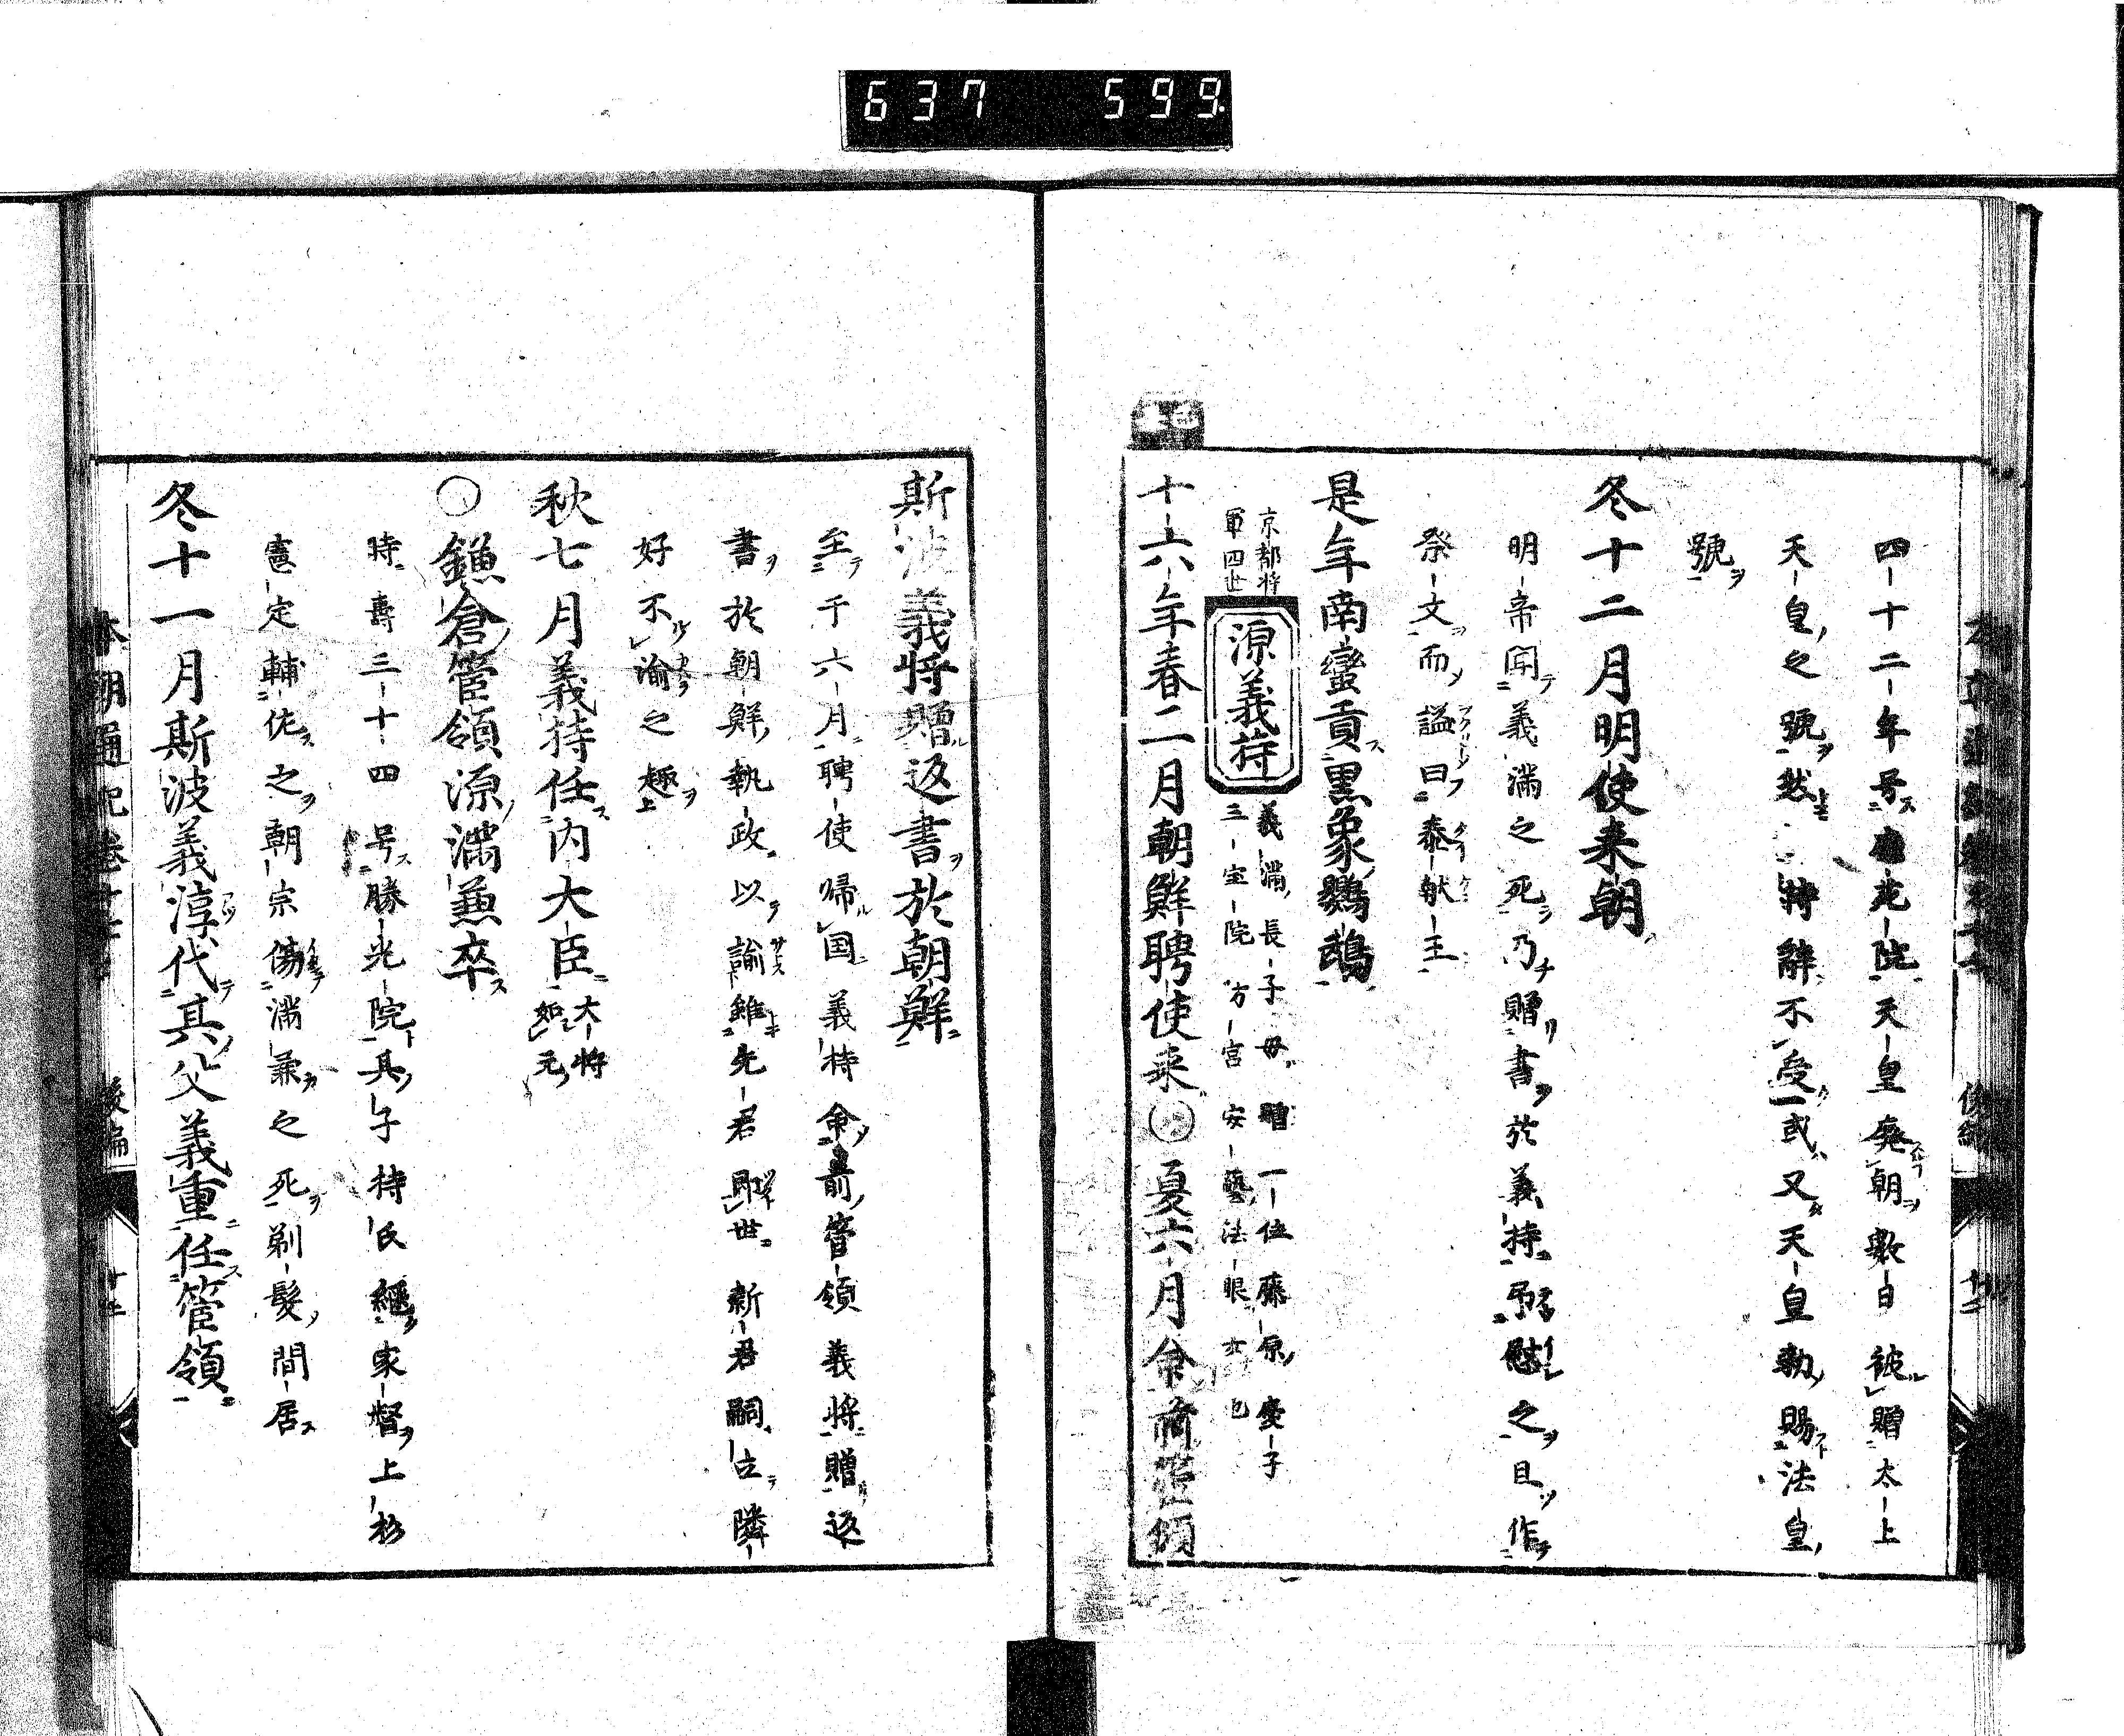 637 599
四十二年号鹿苑院天皇廃朝数日被贈太上
天皇之號然　特辭不受或又天皇勅賜法皇
號
冬十二月明使来朝
明帝聞義満之死乃贈書於義持弔慰之且作
祭文而謚曰恭献王
是年南蠻貢黒象鸚鵡
京都将
軍四世
源義持
義満長子母贈一位藤原慶子
三宝院方宮安藝法眼女也
十六年春二月朝鮮聘使来○夏六月令前管領
斯波義将贈返書於朝鮮
至于六月聘使帰国義持命前管領義将贈返
書於朝鮮執政以諭雖先君即世新君嗣立隣
好不渝之趣
秋七月義持任内大臣
大将
如元
○鎌倉管領源満兼卒
時壽三十四号勝光院其子持氏繼家督上杉
憲定輔佐之朝宗傷満兼之死剃髪間居
冬十一月斯波義淳代其父義重任管領
本朝通紀巻十 後編